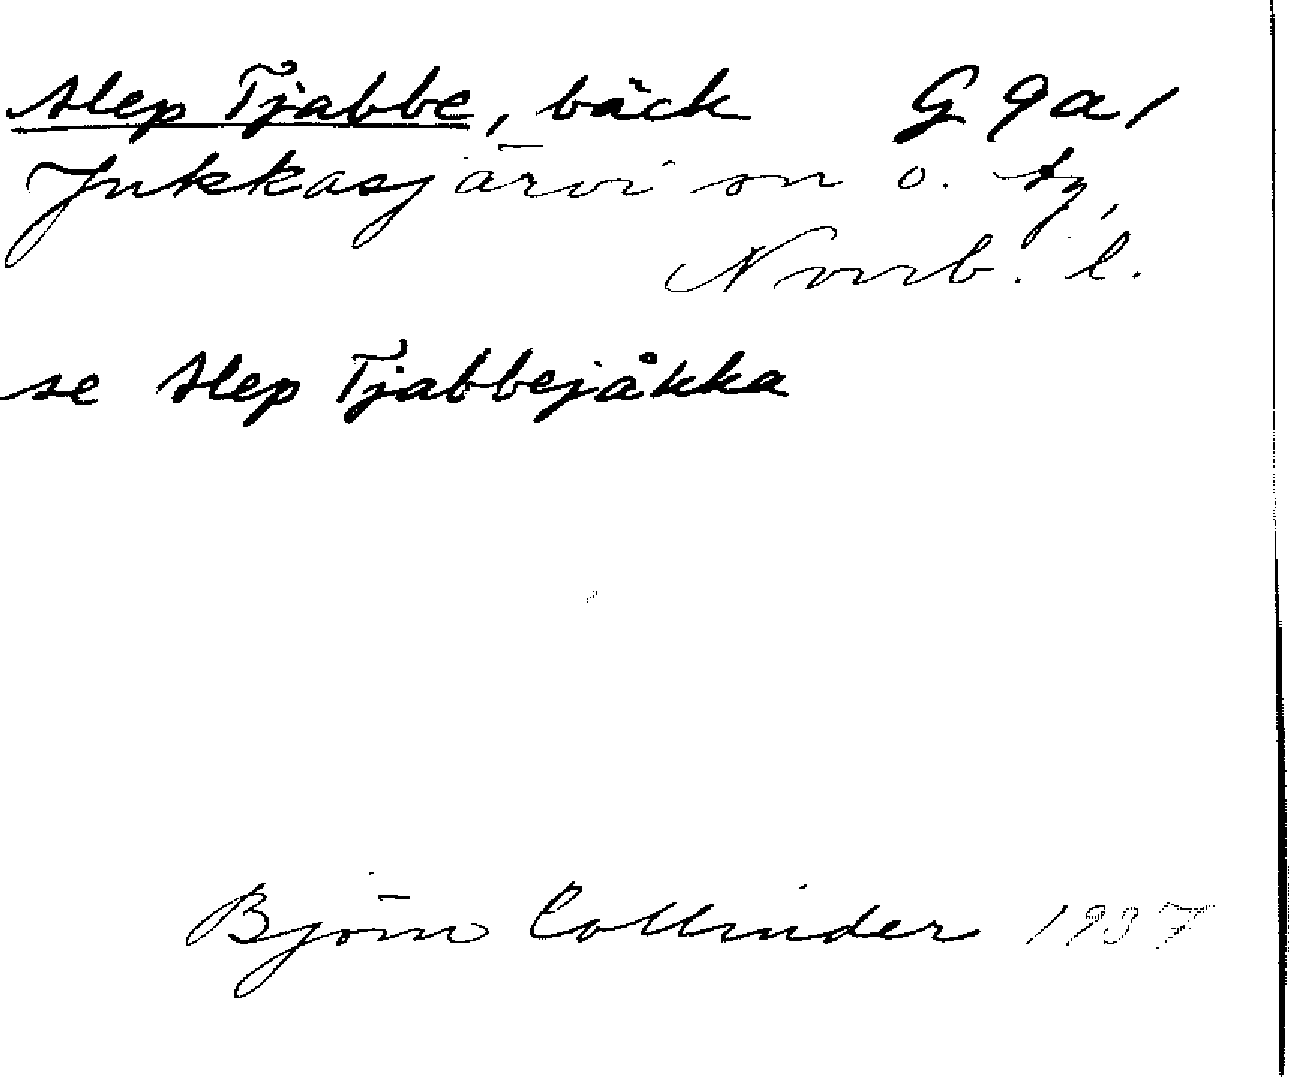 Alep Tjabbe, bäck G 9a1
Jukkasjärvi sn o. tg,
Norrb. l.
se Alep Tjabbejåkka
Björn Collinder 1937